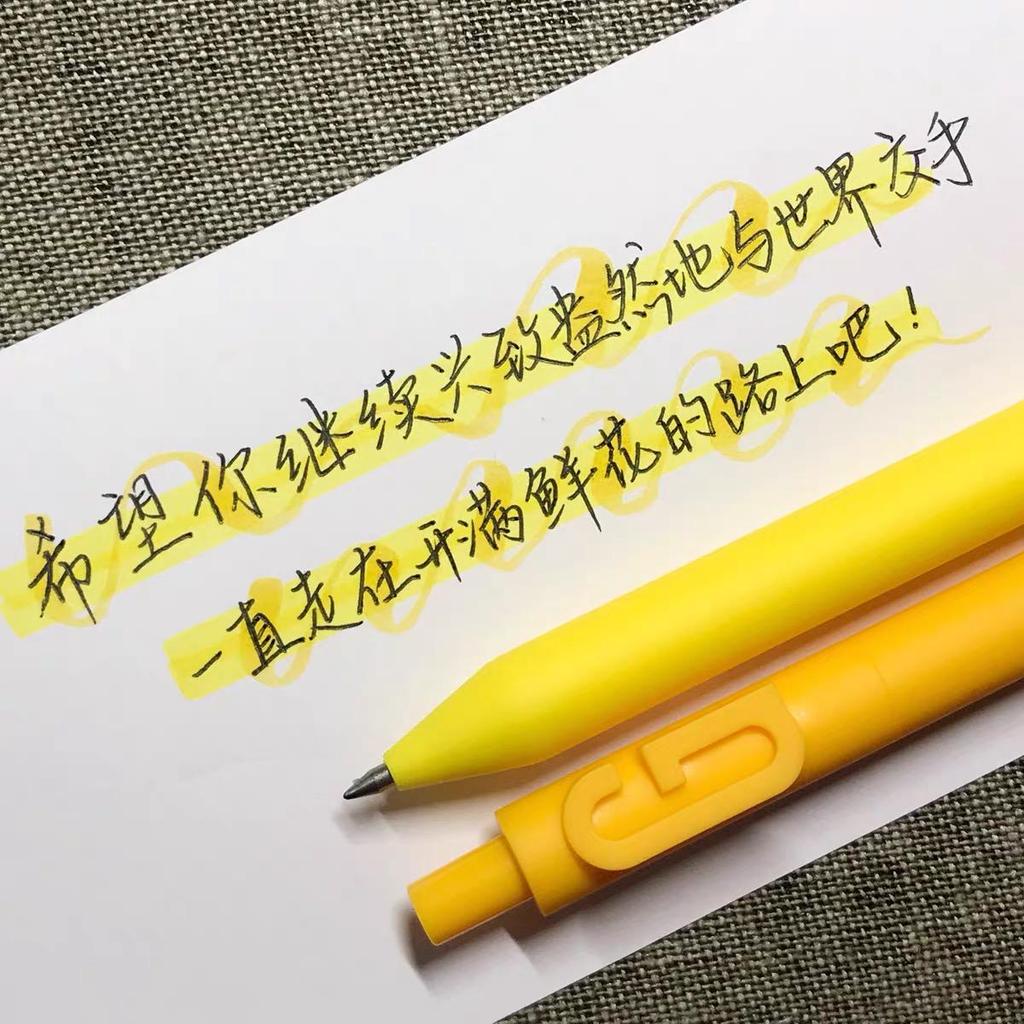 希望你继续兴致盎然地与世界交手
一直走在开满鲜花的路上吧!